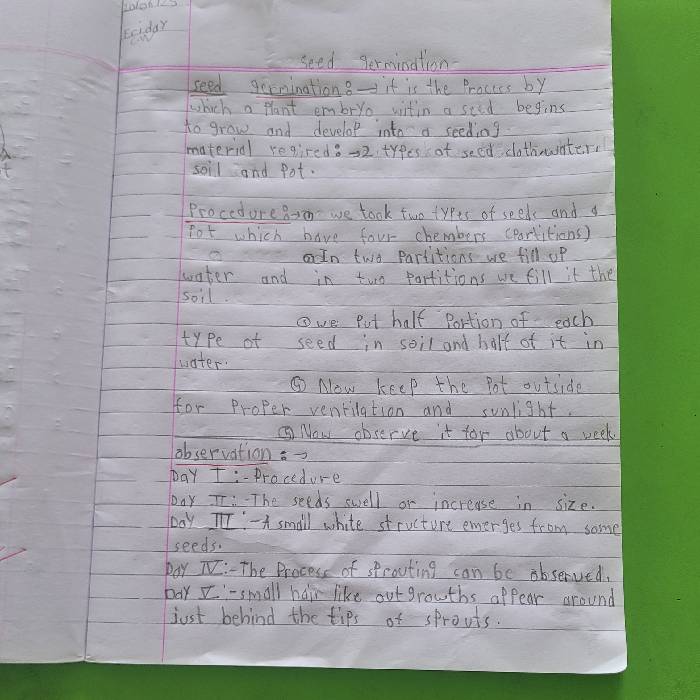 20/06/25
Friday
CW
seed germination
seed germination:→ it is the Process by
which a Plant embryo witin a seed begins
to grow and develop into a seeding.
material reqired:→2 types of seed cloth, water,
soil and Pot.
Procedure:→ we took two types of seeds and a
Pot which have four chembers (Partitions)
In two Partitions we fill up
water and in two Partitions we fill it the
soil.
③ we Put half Portion of each
type of seed in soil and half of it in
water.
④ Now keep the Pot outside
for Proper ventilation and sunlight.
⑤ Now observe it for about a week
observation:→
Day I:-Procedure
Day II:-The seeds swell or increase in size.
Day III:-A small white structure emerges from some
seeds.
Day IV:-The Process of sprouting can be observed.
Day V:-small hair like outgrowths appear around
just behind the tips of sprouts.